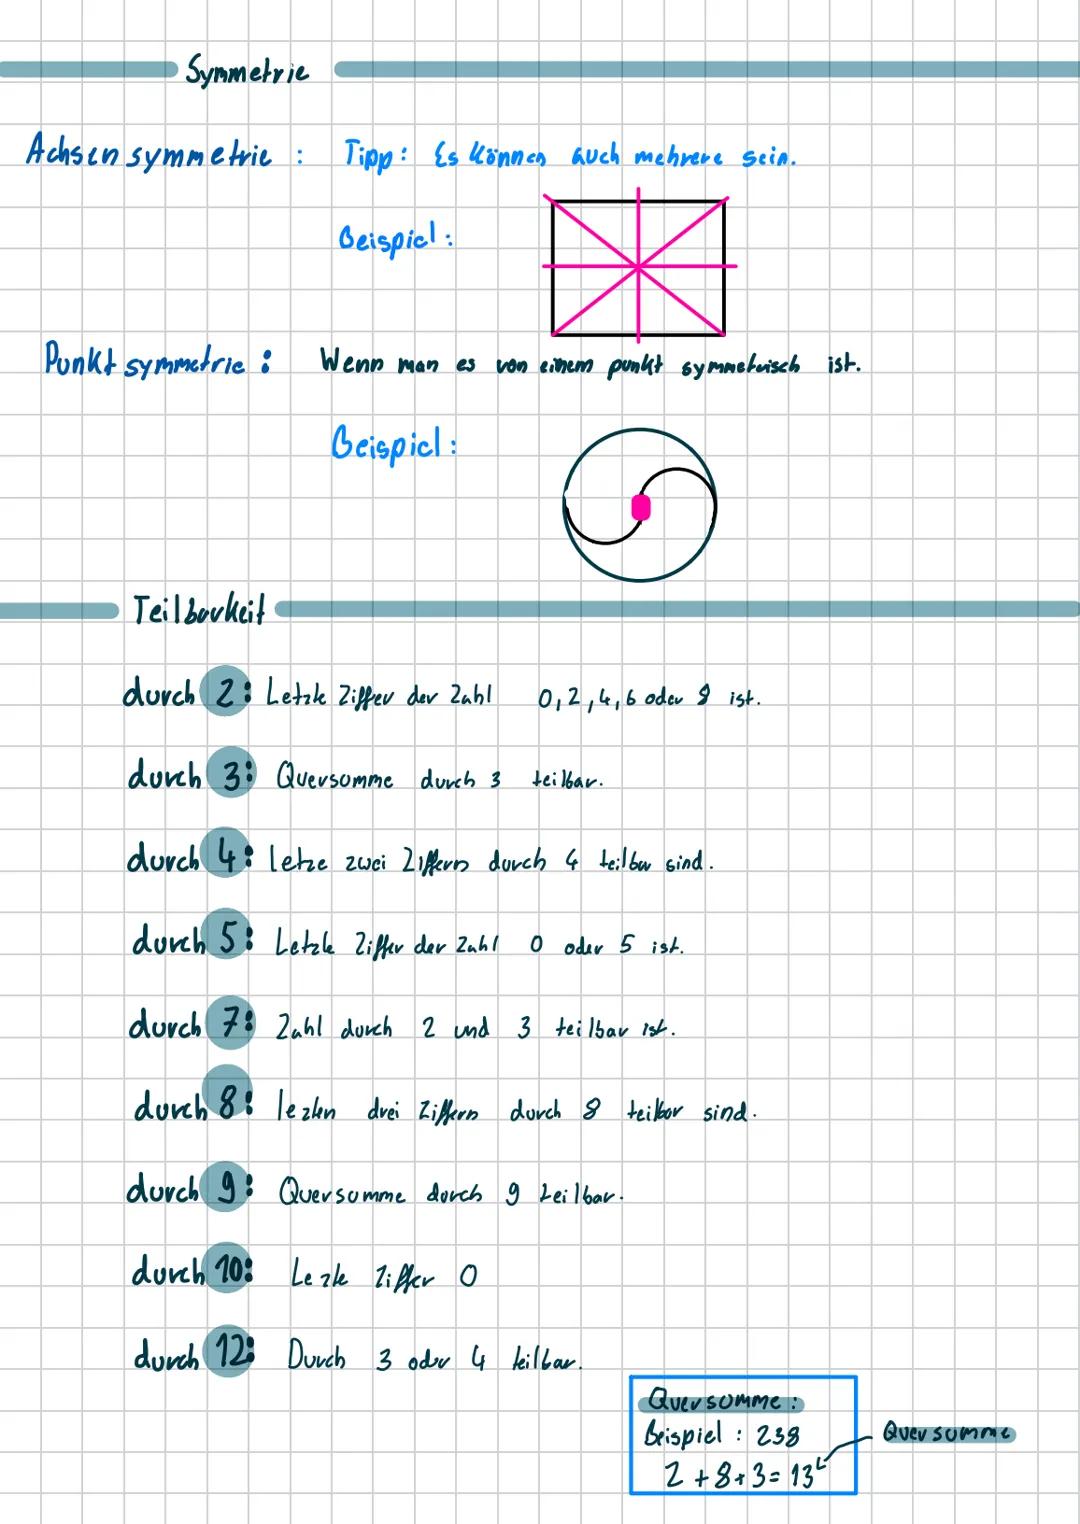 Symmetrie
Achsensymmetrie : Tipp: Es können auch mehrere sein.
Beispiel :
Punktsymmetrie : Wenn man es von einem punkt symmetrisch ist.
Beispiel :
Teilbarkeit
durch 2: Letzte Ziffer der Zahl 0, 2, 4, 6 oder 8 ist.
durch 3: Quersumme durch 3 teilbar.
durch 4: letze zwei Ziffern durch 4 teilbar sind.
durch 5: Letzte Ziffer der Zahl 0 oder 5 ist.
durch 7: Zahl durch 2 und 3 teilbar ist.
durch 8: lezten drei Ziffern durch 8 teilbar sind.
durch 9: Quersumme durch 9 teilbar.
durch 10: Lezte Ziffer 0
durch 12: Durch 3 oder 4 teilbar.
Quersumme :
Beispiel : 238
2 + 8 + 3 = 13
Quersumme